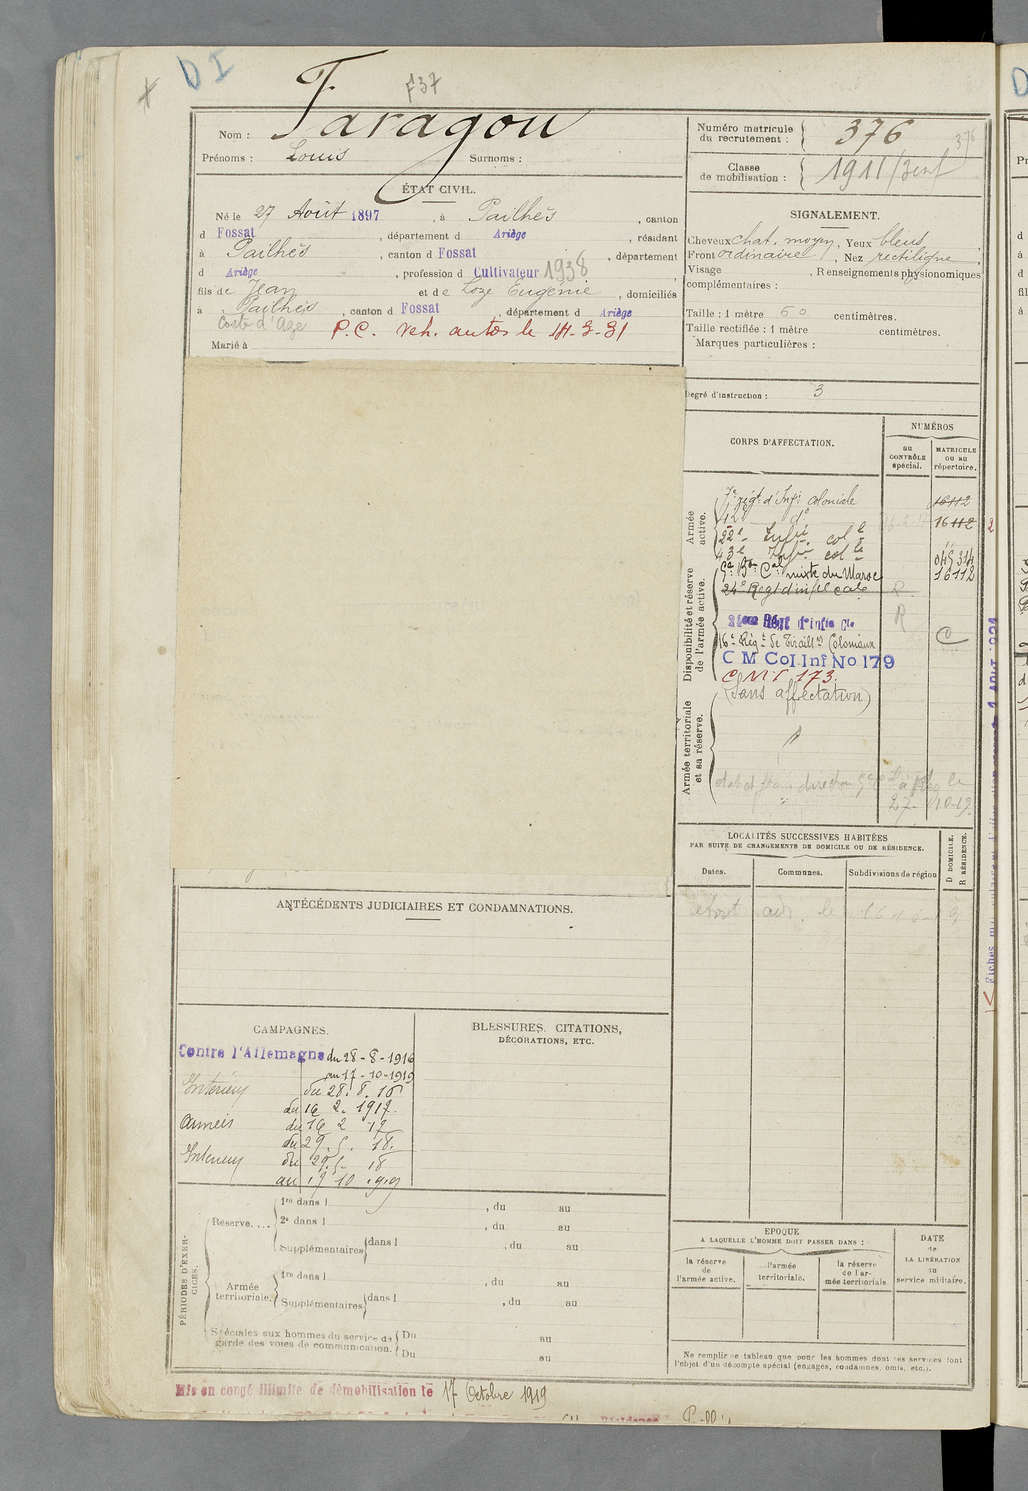 D I
737
Nom : Faragou
Prénoms : Louis Surnoms :
ÉTAT CIVIL.
Né le 27 Août 1897, à Pailhès, canton
d Fossat, département d Ariège, résidant
à Pailhès, canton d Fossat, département
d Ariège, profession d Cultivateur 1938
fils de Jean et de Loze Eugénie, domiciliés
à Pailhès, canton d Fossat, département d Ariège
P.C. veh. autos le 14-3-31
Marié à
Numéro matricule
du recrutement : 376
376
Classe
de mobilisation : 1911
SIGNALEMENT.
Cheveux chat. moyen, Yeux bleus,
Front ordinaire, Nez rectiligne,
Visage , Renseignements physionomiques
complémentaires :
Taille : 1 mètre 60 centimètres.
Taille rectifiée : 1 mètre centimètres.
Marques particulières :
Degré d'instruction : 3
CORPS D'AFFECTATION.
NUMÉROS
au
CONTRÔLE
spécial.
MATRICULE
ou au
répertoire.
Armée
active.
7e régt d'Infie coloniale 16112
42e do 16112
22e Infie colle
43e Infie colle 045314
Disponibilité et réserve
de l'armée active.
Bon Cal mixte du Maroc 16112
24e Régt d'inf cale R
R
16e Régt de Tirailrs Coloniaux
C M Col.Inf No 179
CMI 173.
Armée territoriale
et sa réserve.
(Sans affectation)
27-10-19
LOCALITÉS SUCCESSIVES HABITÉES
PAR SUITE DE CHANGEMENTS DE DOMICILE OU DE RÉSIDENCE.
Dates. Communes. Subdivisions de région
D DOMICILE.
R RÉSIDENCE.
ANTÉCÉDENTS JUDICIAIRES ET CONDAMNATIONS.
CAMPAGNES.
Contre l'Allemagne du 28-8-1916
au 17-10-1919
Intérieur du 28.8.16
au 16 2. 1917.
Armées du 16 2 17
au 29.5.18.
Intérieur du 29.5.18
au 17 10 1919
BLESSURES, CITATIONS,
DÉCORATIONS, ETC.
PÉRIODES D'EXERCICES.
Réserve.... 1re dans l , du au
2e dans l , du au
Supplémentaires dans l , du au
Armée
territoriale. 1re dans l , du au
Supplémentaires dans l , du au
Spéciales aux hommes du service de
garde des voies de communication. Du au
Du au
EPOQUE
A LAQUELLE L'HOMME DOIT PASSER DANS :
la réserve
de
l'armée active.
l'armée
territoriale.
la réserve
de l'ar-
mée territoriale.
DATE
de
LA LIBÉRATION
du
service militaire.
Ne remplir ce tableau que pour les hommes dont les services font
l'objet d'un décompte spécial (engagés, condamnés, omis, etc.).
Mis en congé illimité de démobilisation le 17 Octobre 1919